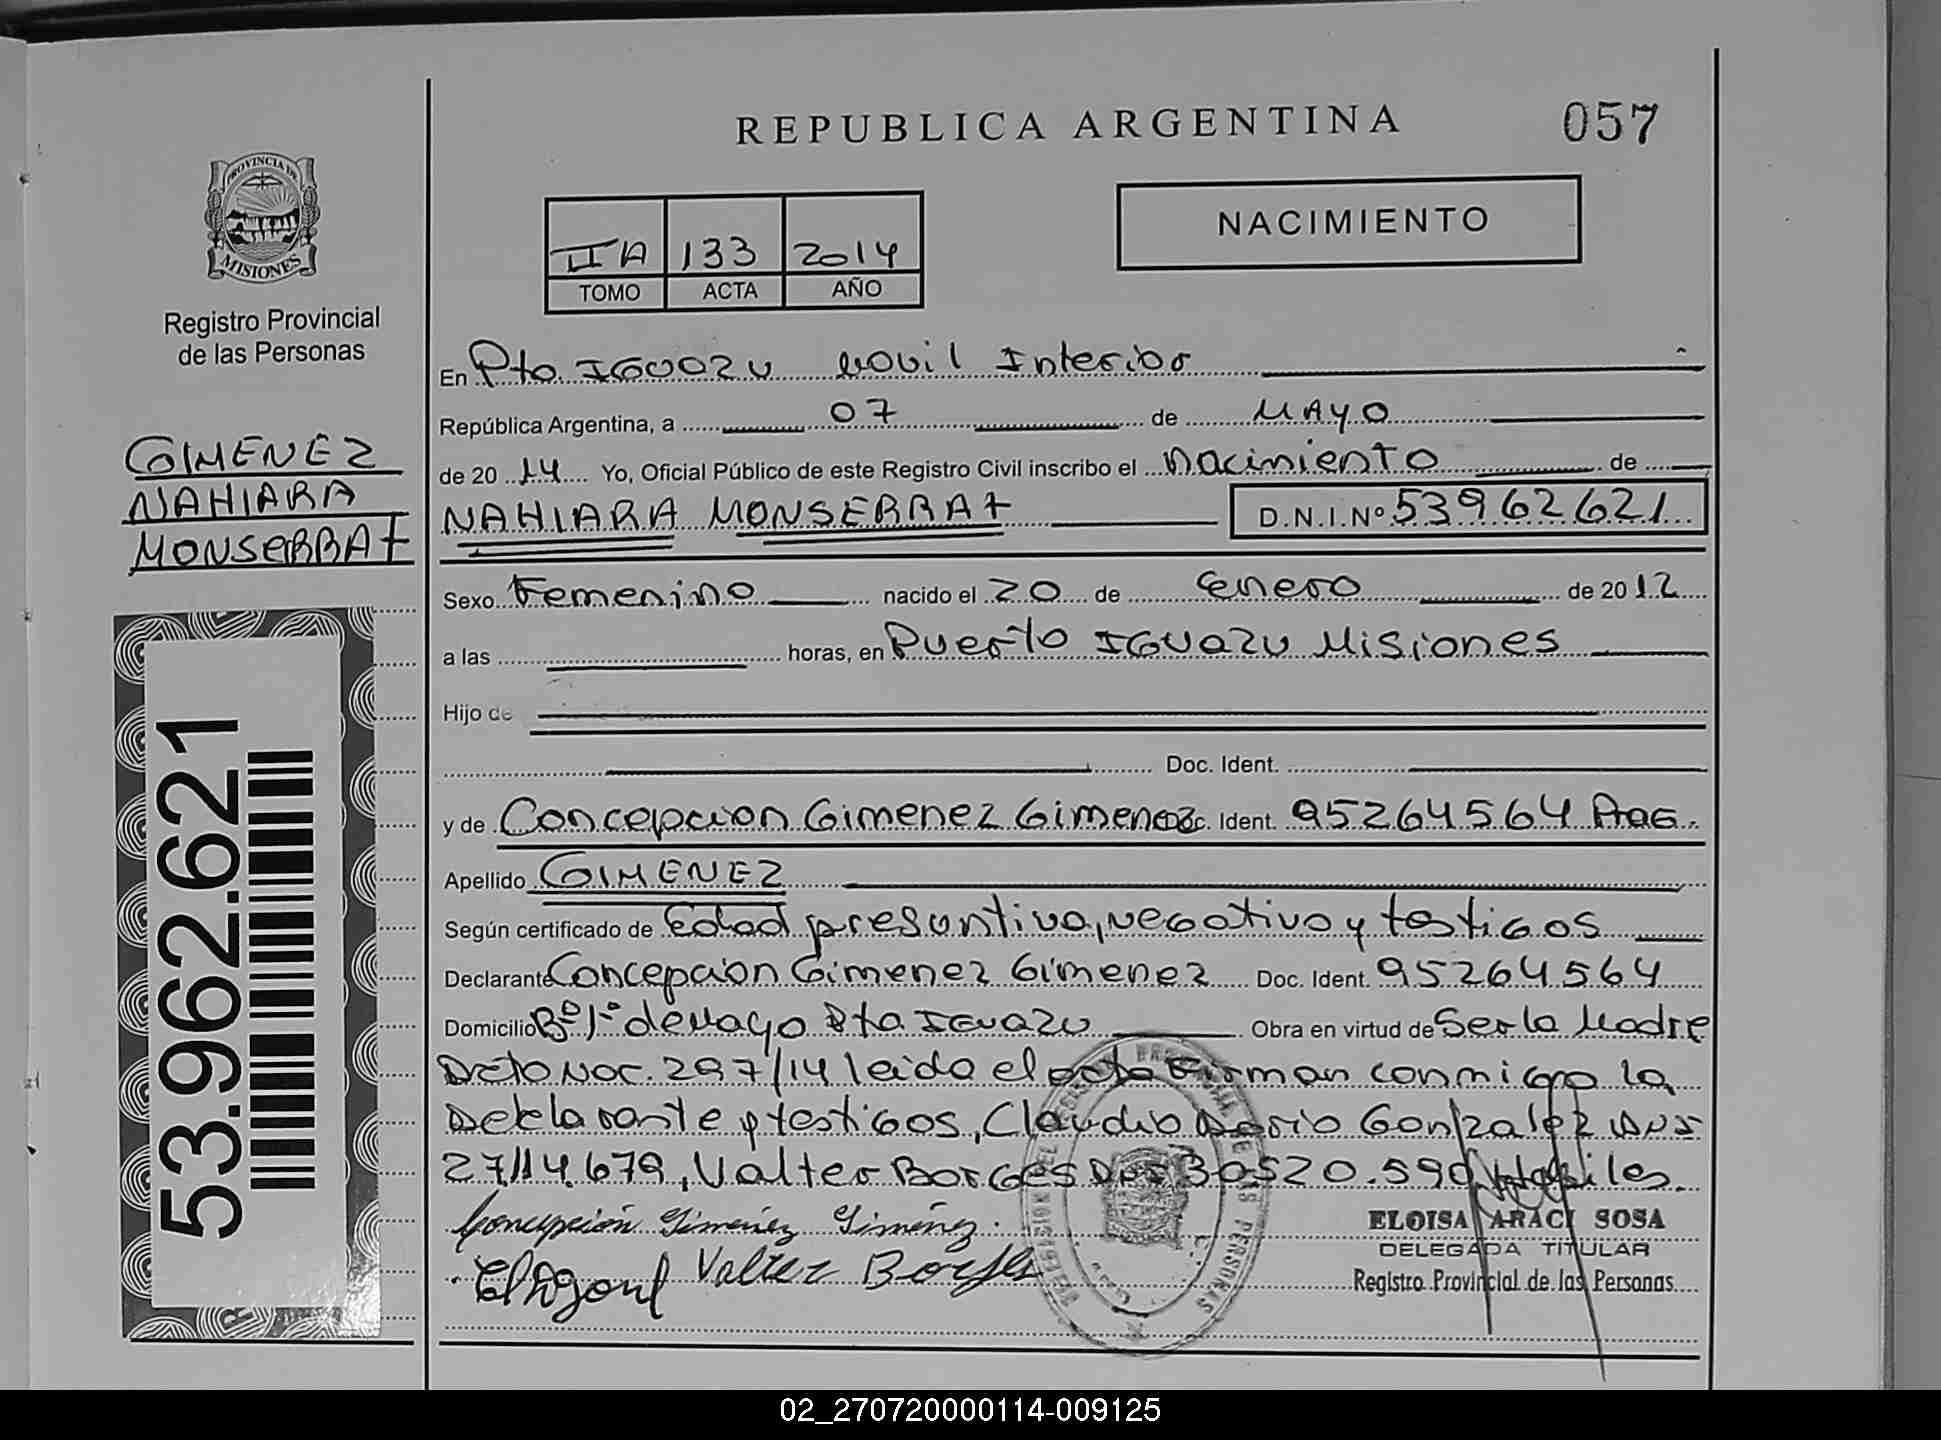 REPUBLICA ARGENTINA
057
PROVINCIA DE
MISIONES
Registro Provincial
de las Personas
GIMENEZ
NAHIARA
MONSERRAT
53.962.621
II A 133 2014
TOMO ACTA AÑO
NACIMIENTO
En Pto IGUAZU Movil Interior
República Argentina, a 07 de MAYO
de 20 14 Yo, Oficial Público de este Registro Civil inscribo el Nacimiento de
NAHIARA MONSERRAT D.N.I. Nº 53962621
Sexo Femenino nacido el 20 de Enero de 20 12
a las horas, en Puerto IGUAZU Misiones
Hijo de
Doc. Ident.
y de Concepcion Gimenez Gimenez Doc. Ident. 95264564 Arg.
Apellido GIMENEZ
Según certificado de Edad presuntiva, negativo y testigos
Declarante Concepcion Gimenez Gimenez Doc. Ident. 95264564
Domicilio Bº 1º de Mayo Pto. IGUAZU Obra en virtud de Ser la Madre
Dcto Nac. 297/14 leida el acta Firman conmigo la
Declarante y testigos, Claudio Dario Gonzalez DNI
27114.679, Valter Borges DNI 30520.590 Habiles.
Concepción Gimenez Gimenez.
Valter Borges
ELOISA ARACI SOSA
DELEGADA TITULAR
Registro Provincial de las Personas
02_270720000114-009125